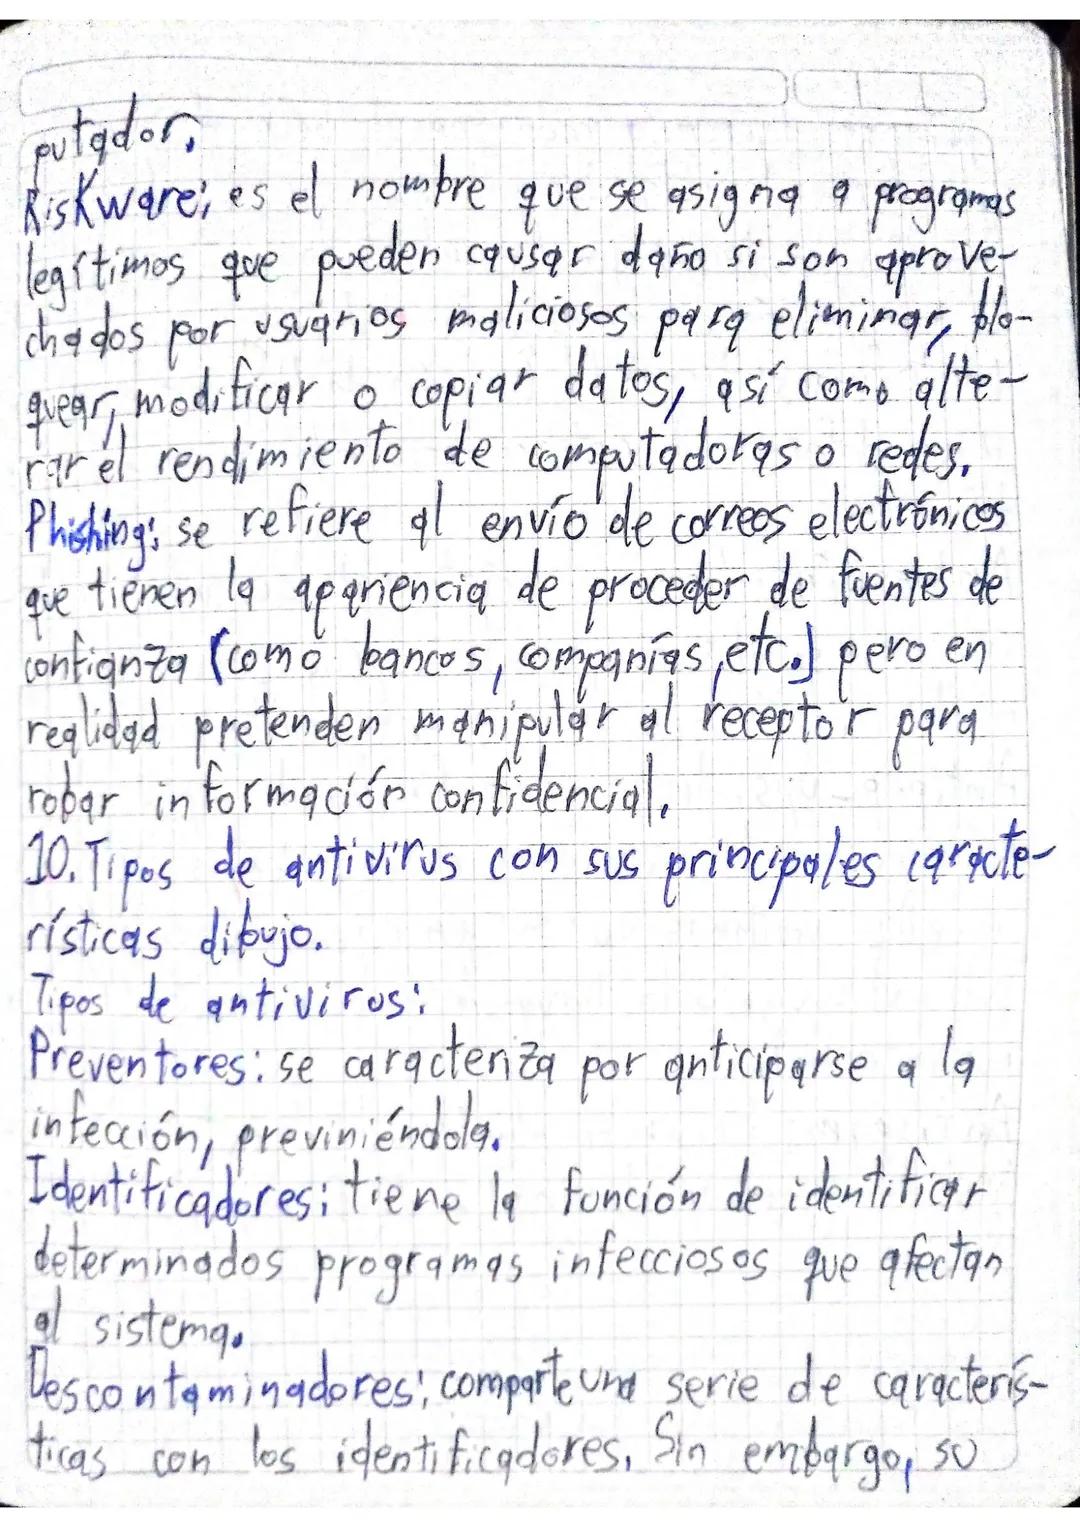 putador.
Riskware: es el nombre que se asigna a programas
legítimos que pueden causar daño si son aprove-
chados por usuarios maliciosos para eliminar, blo-
quear, modificar o copiar datos, así como alte-
rar el rendimiento de computadoras o redes.
Phishing: se refiere al envío de correos electrónicos
que tienen la apariencia de proceder de fuentes de
confianza (como bancos, companías, etc.) pero en
realidad pretenden manipular al receptor para
robar información confidencial.
10. Tipos de antivirus con sus principales caracte-
rísticas dibujo.
Tipos de antivirus:
Preventores: se caracteriza por anticiparse a la
infección, previniéndola.
Identificadores: tiene la función de identificar
determinados programas infecciosos que afectan
al sistema.
Descontaminadores: comparte una serie de caracterís-
ticas con los identificadores. Sin embargo, su